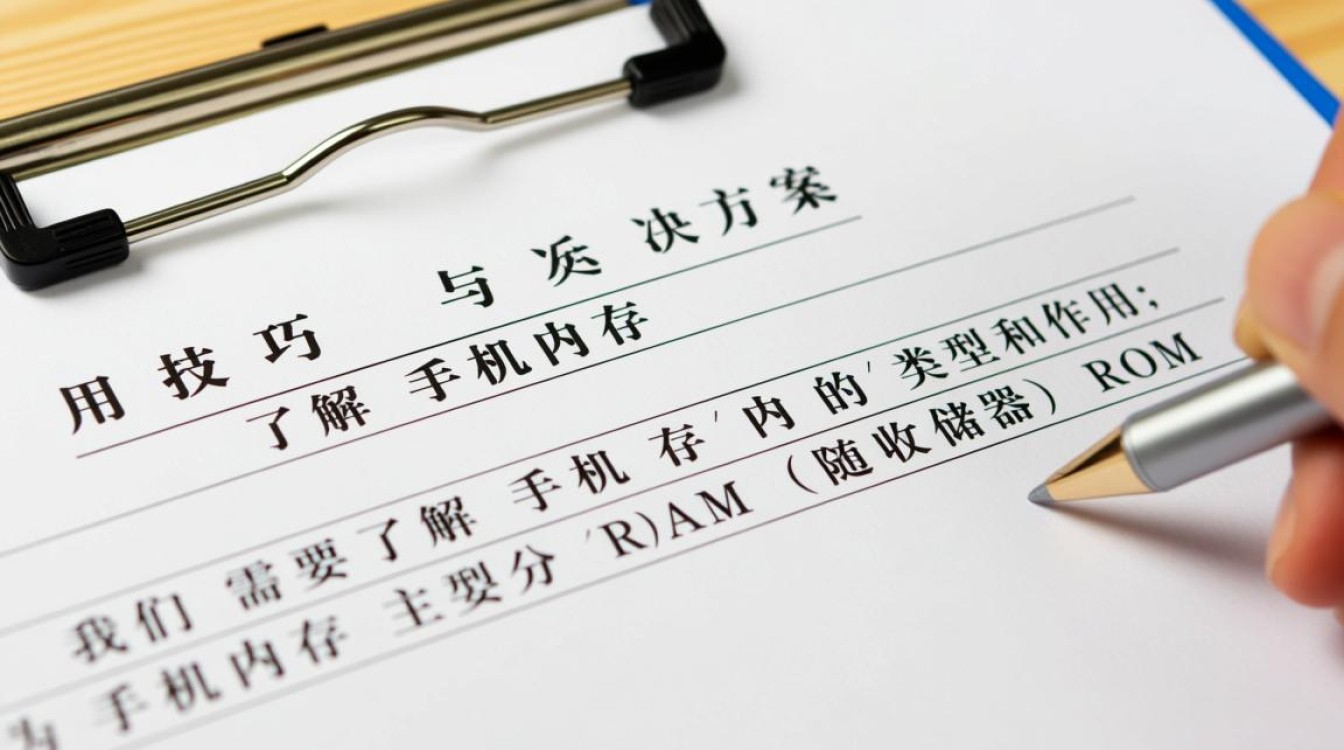 用技巧 与 决方案
了解 手机内存
我们 需要了解 手机 存′内 的′类型和作用；
为 手机内存 主型分 ′R)AM （随收储器）ROM